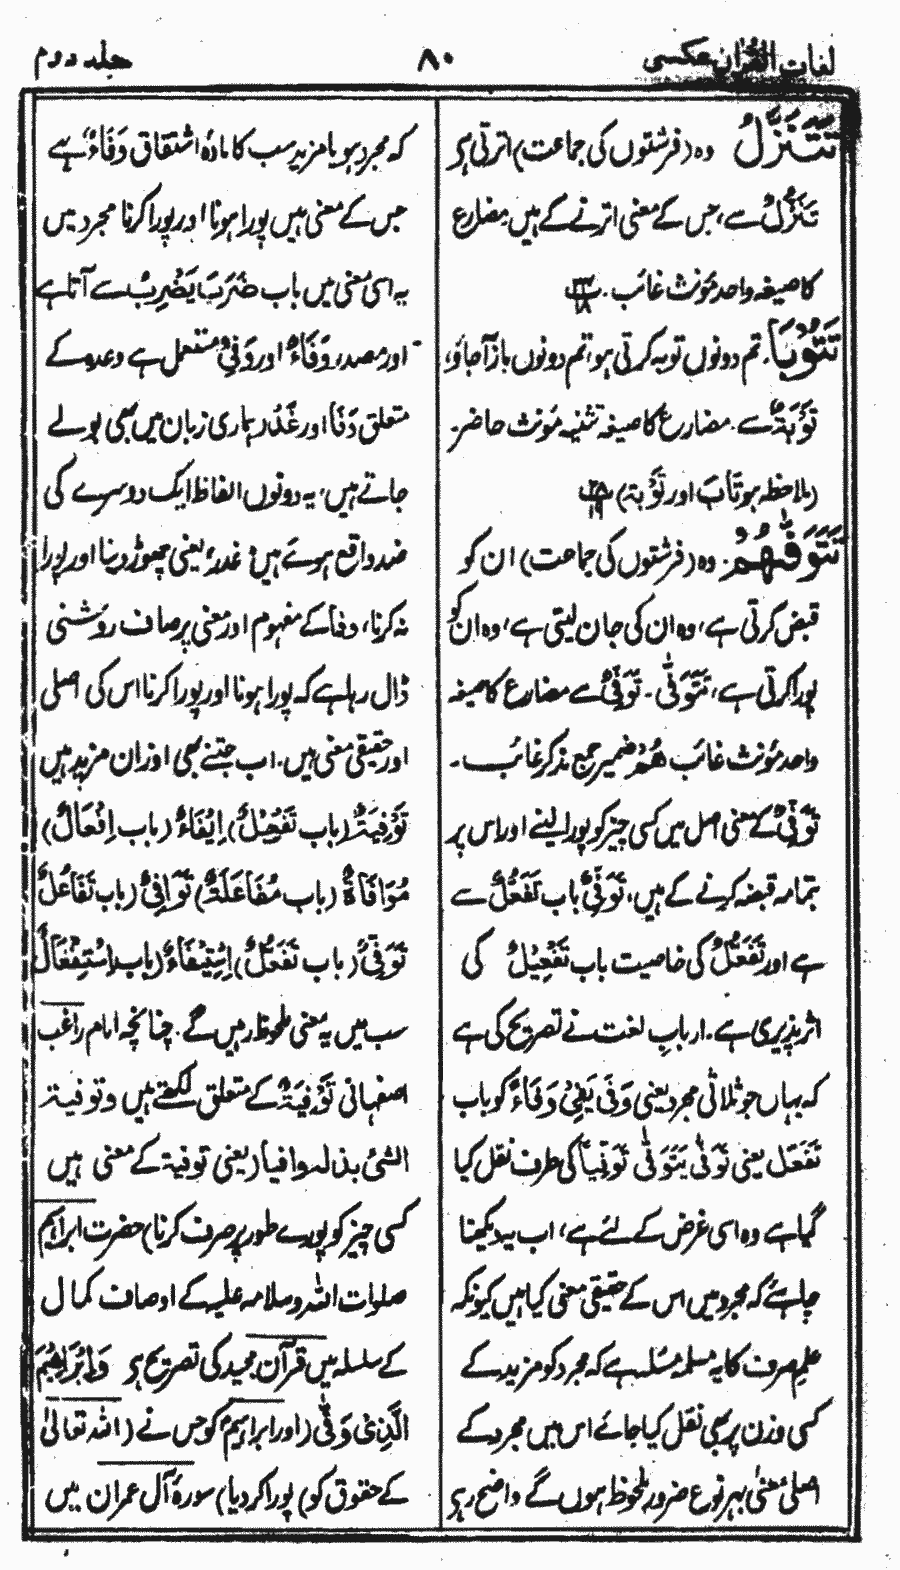 لغات القرآن عکسی
۸۰
جلد دوم
تَتَنَزَّلُ وہ (فرشتوں کی جماعت) اترتی ہے
تَنَزُّلٌ سے، جس کے معنی اترنے کے ہیں مضارع
کا صیغہ واحد مؤنث غائب۔
تَتُوْبَا۔ تم دونوں توبہ کرتی ہو، تم دونوں باز آجاؤ،
تَوْبَۃٌ سے۔ مضارع کا صیغہ تثنیہ مؤنث حاضر۔
(ملاحظہ ہو تَابَ اور تَوْبَۃ)
تَتَوَفّٰھُمُ۔ وہ (فرشتوں کی جماعت) ان کو
قبض کرتی ہے، وہ ان کی جان لیتی ہے، وہ ان کو
پورا کرتی ہے، تَتَوَفّٰی۔ تَوَفِّیٌ سے مضارع کا صیغہ
واحد مؤنث غائب ھُمْ ضمیر جمع مذکر غائب۔
تَوَفِّیٌ کے معنی اصل میں کسی چیز کو پورا لینے اور اس پر
بتمامہ قبضہ کرنے کے ہیں، تَوَفِّیٌ باب تَفَعُّلٌ سے
ہے اور تَفَعُّلٌ کی خاصیت باب تَفْعِیْلٌ کی
اثر پذیری ہے۔ اربابِ لغت نے تصریح کی ہے
کہ یہاں جو ثلاثی مجرد یعنی وَفٰی یَفِیْ وَفَاءً کو باب
تَفَعّل یعنی تَوَفّٰی یَتَوَفّٰی تَوَفِّیاً کی طرف نقل کیا
گیا ہے وہ اسی غرض کے لئے ہے، اب یہ دیکھنا
چاہئے کہ مجرد میں اس کے حقیقی معنی کیا ہیں کیونکہ
علمِ صرف کا یہ مسلمہ مسئلہ ہے کہ مجرد کو مزید کے
کسی وزن پر بھی نقل کیا جائے اس میں مجرد کے
اصلی معنیٰ بہر نوع ضرور ملحوظ ہوں گے واضح رہے
کہ مجرد ہو یا مزید سب کا مادہ اشتقاق وَفَاءٌ ہے
جس کے معنی ہیں پورا ہونا اور پورا کرنا مجرد میں
یہ اسی معنی میں باب ضَرَبَ یَضْرِبُ سے آتا ہے
اور مصدر وَفَاءٌ اور وَفْیٌ مستعمل ہے وعدہ کے
متعلق وَفَا اور غَدْر ہماری زبان میں بھی بولے
جاتے ہیں، یہ دونوں الفاظ ایک دوسرے کی
ضد واقع ہوئے ہیں؛ غدر، یعنی چھوڑ دینا اور پورا
نہ کرنا، وفا کے مفہوم اور معنی پر صاف روشنی
ڈال رہا ہے کہ پورا ہونا اور پورا کرنا اس کی اصلی
اور حقیقی معنی ہیں، اب جتنے بھی اوزان مزید ہیں
تَوْفِیَۃٌ (باب تَفْعِیْلٌ) اِیْفَاءٌ (باب اِفْعَالٌ)
مُوَافَاۃٌ (باب مُفَاعَلَۃٌ) تَوَافِیٌ (باب تَفَاعُلٌ
تَوَفِّیٌ (باب تَفَعُّلٌ) اِسْتِیْفَاءٌ (باب اِسْتِفْعَالٌ
سب میں یہ معنی ملحوظ رہیں گے۔ چنانچہ امام راغب
اصفہانی تَوْفِیَۃٌ کے متعلق لکھتے ہیں وتوفیۃ
الشئ بذلہ وافیا (یعنی توفیۃ کے معنی ہیں
کسی چیز کو پورے طور پر صرف کرنا) حضرت ابراہیم
صلوات اللہ وسلامہ علیہ کے اوصاف کمال
کے سلسلہ میں قرآن مجید کی تصریح ہے وَاِبْرَاھِیْمَ
الَّذِیْ وَفّٰی (اور ابراہیم کو جس نے) اللہ تعالیٰ
کے حقوق کو) پورا کر دیا) سورۂ آل عمران میں